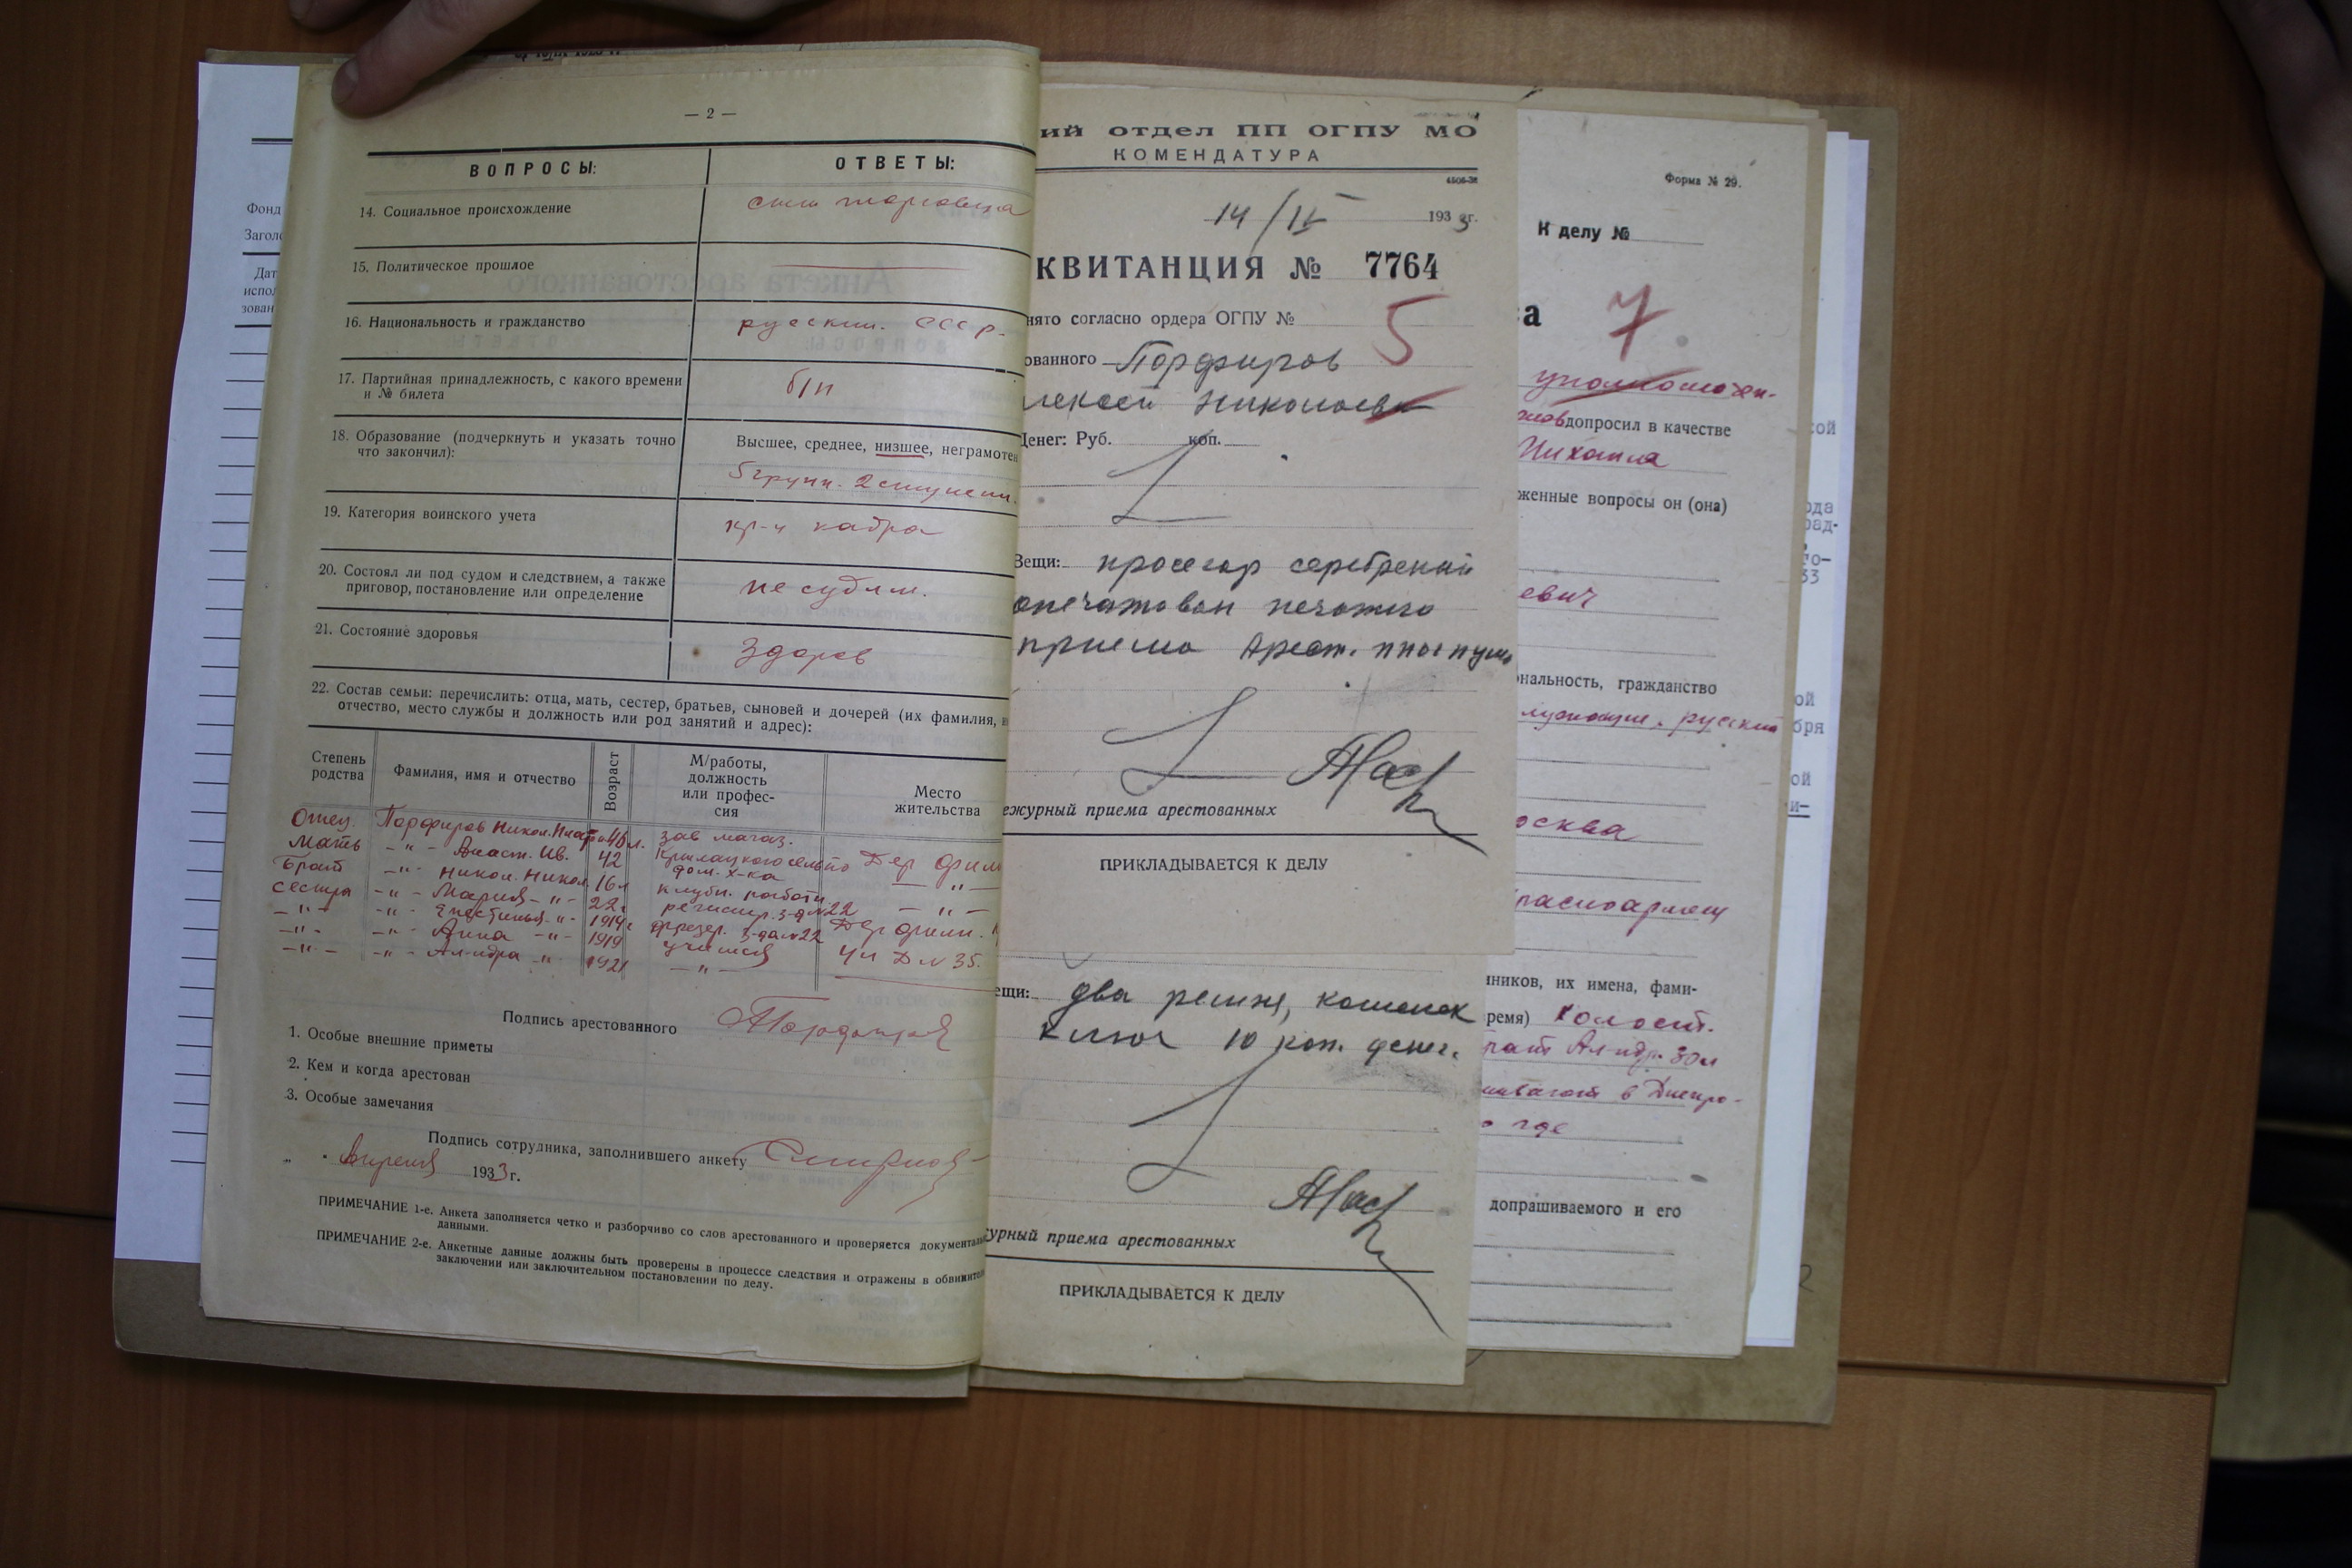 — 2 —
ВОПРОСЫ:
ОТВЕТЫ:
14. Социальное происхождение
сын торговца
15. Политическое прошлое
16. Национальность и гражданство
русский. СССР.
17. Партийная принадлежность, с какого времени
и № билета
б/п
18. Образование (подчеркнуть и указать точно
что закончил):
Высшее, среднее, низшее, неграмотен
5 групп. 2 ступени.
19. Категория воинского учета
кр-ц кадра
20. Состоял ли под судом и следствием, а также
приговор, постановление или определение
не судим.
21. Состояние здоровья
Здоров
22. Состав семьи: перечислить: отца, мать, сестер, братьев, сыновей и дочерей (их фамилия,
отчество, место службы и должность или род занятий и адрес):
Степень
родства
Фамилия, имя и отчество
Возраст
М/работы,
должность
или профес-
сия
Место
жительства
Отец Порфиров Никол. зав магаз.
Мать -"- Анаст. Ив. 42 дом. х-ка
Брат -"- Никол. Никол. 16 л клубн. работн.
Сестра -"- Мария -"- 22 регистр. з-д №22 -"-
-"- -"- -"- 1914 фрезер. з-да №22
-"- -"- Анна -"- 1919 учащаяся
-"- -"- Ал-ндра -"- 1921 -"-
Дер
Дер
Д № 35.
Подпись арестованного Порфиров
1. Особые внешние приметы
2. Кем и когда арестован
3. Особые замечания
Подпись сотрудника, заполнившего анкету
Апреля 1933 г.
ПРИМЕЧАНИЕ 1-е. Анкета заполняется четко и разборчиво со слов арестованного и проверяется документаль
данными.
ПРИМЕЧАНИЕ 2-е. Анкетные данные должны быть проверены в процессе следствия и отражены в обвините
заключении или заключительном постановлении по делу.
ий отдел ПП ОГПУ МО
КОМЕНДАТУРА
14/IV 1933г.
КВИТАНЦИЯ № 7764
нято согласно ордера ОГПУ №
5
ованного Порфиров
лексей Николаев
Денег: Руб. коп.
Вещи: серебреный
опечатован печатью
приема Арест.
ежурный приема арестованных
ПРИКЛАДЫВАЕТСЯ К ДЕЛУ
ещи: два ремня, кошелек
ключ 10 коп. денег.
урный приема арестованных
ПРИКЛАДЫВАЕТСЯ К ДЕЛУ
Форма № 29.
К делу №
а
7
уполномочен-
допросил в качестве
Михаила
женные вопросы он (она)
евич
нальность, гражданство
русский
осква
расноармеец
нников, их имена, фами-
ремя) холост.
рат Ал-ндр. 30 л
в Днепро-
где
допрашиваемого и его
Фонд
Загол
Дат
испол
зован